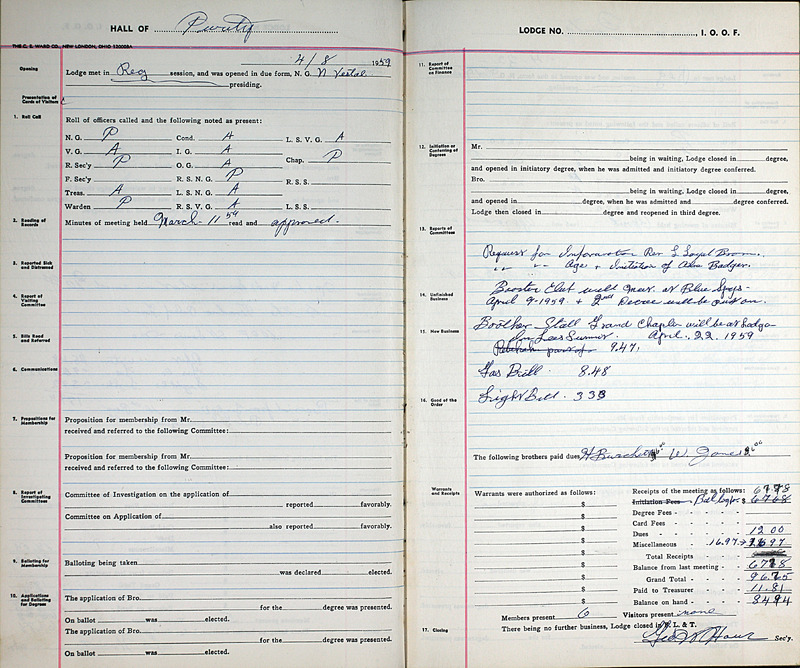 HALL OF Purity
THE C. E. WARD CO., NEW LONDON, OHIO
4/8 1959
Opening
Lodge met in Reg session, and was opened in due form, N. G. N Vestal
presiding.
Presentation of Cards of Visitors
1. Roll Call
Roll of officers called and the following noted as present:
N. G. P Cond. A L. S. V. G. A
V. G. A I. G. A
R. Sec'y P O. G. A Chap. P
F. Sec'y R. S. N. G. P R. S. S.
Treas. A L. S. N. G. A
Warden P R. S. V. G. A L. S. S.
2. Reading of Records
Minutes of meeting held March 11 59 read and approved.
3. Reported Sick and Distressed
4. Report of Visiting Committee
5. Bills Read and Referred
6. Communications
7. Propositions for Membership
Proposition for membership from Mr.
received and referred to the following Committee:
Proposition for membership from Mr.
received and referred to the following Committee:
8. Report of Investigating Committees
Committee of Investigation on the application of
reported favorably.
Committee on Application of
also reported favorably.
9. Balloting for Membership
Balloting being taken
was declared elected.
10. Applications and Balloting for Degrees
The application of Bro.
for the degree was presented.
On ballot was elected.
The application of Bro.
for the degree was presented.
On ballot was elected.
LODGE NO. , I. O. O. F.
11. Report of Committee on Finance
12. Initiation or Conferring of Degrees
Mr.
being in waiting, Lodge closed in degree,
and opened in initiatory degree, when he was admitted and initiatory degree conferred.
Bro.
being in waiting, Lodge closed in degree,
and opened in degree, when he was admitted and degree conferred.
Lodge then closed in degree and reopened in third degree.
13. Reports of Committees
Request for Information Rev L Loyal
" " " Age + Initiation of Asa Badger.
14. Unfinished Business
Booster Club will meet at Blue Spgs.
April 9-1959 + 2nd Decree will be put on.
15. New Business
Brother Stall Grand Chaplin will be at Lodge
in Lees Summit. April 22, 1959
Rebekah part of 9.47.
Gas Bill. 8.48
16. Good of the Order
Light Bill. 3 38
The following brothers paid dues H 6 00 W. Jones 6 00
Warrants and Receipts
Warrants were authorized as follows:
$
$
$
$
$
$
$
$
$
Receipts of the meeting as follows:
Initiation Fees $ 67 68
Degree Fees
Card Fees
Dues 12 00
Miscellaneous 16.97 16 97
Total Receipts
Balance from last meeting 67 78
Grand Total 96 75
Paid to Treasurer 11.81
Balance on hand 84 94
Members present 6 Visitors present none
17. Closing
There being no further business, Lodge closed in F. L. & T.
Geo W Hour Sec'y.